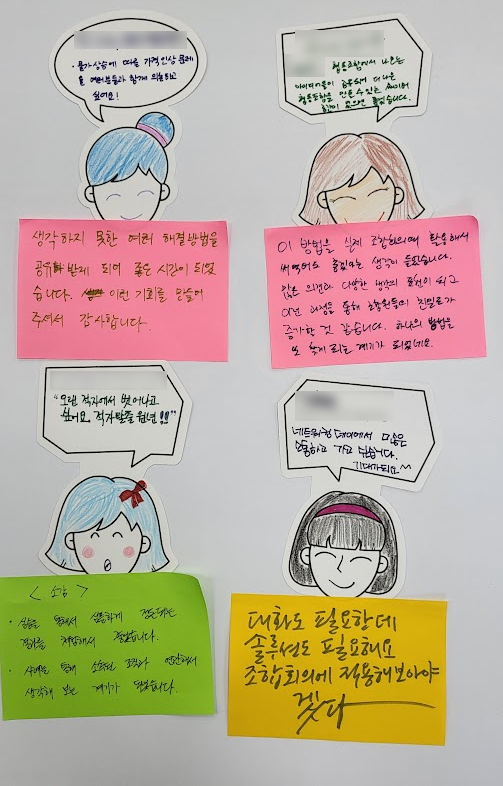 · 물가상승에 따른 가격인상 문제
를 여러분들과 함께 의논하고
싶어요!
협동조합에서 나오는
아이디어들이 공유되어 더 나은
협동조합을 만들 수 있는
좋겠습니다.
생각하지 못한 여러 해결방법을
공유 받게 되어 좋은 시간이 되었
습니다. 이런 기회를 만들어
주셔서 감사합니다.
이 방법을 실제 조합회의때 활용해서
써 봤어도 좋겠다는 생각이 들었습니다.
많은 의견과 다양한 생각의 표현이 되고
이런 과정을 통해 조합원들의 친밀도가
증가할 것 같습니다. 하나의 방법을
또 찾게 되는 계기가 되었네요.
"오랜 적자에서 벗어나고
싶어요. 적자탈출 원년!!"
네트워킹 데이에서 많은
소통하고 가고 싶습니다.
기대가되요^^
<소감>
· 실습을 통해서 심플하게 정돈되는
결과를 체험해서 좋았습니다.
· 사례를 통해
생각해 보는 계기가 되었습니다.
대화도 필요한데
솔루션도 필요해요
조합회의에 적용해보아야
겠다